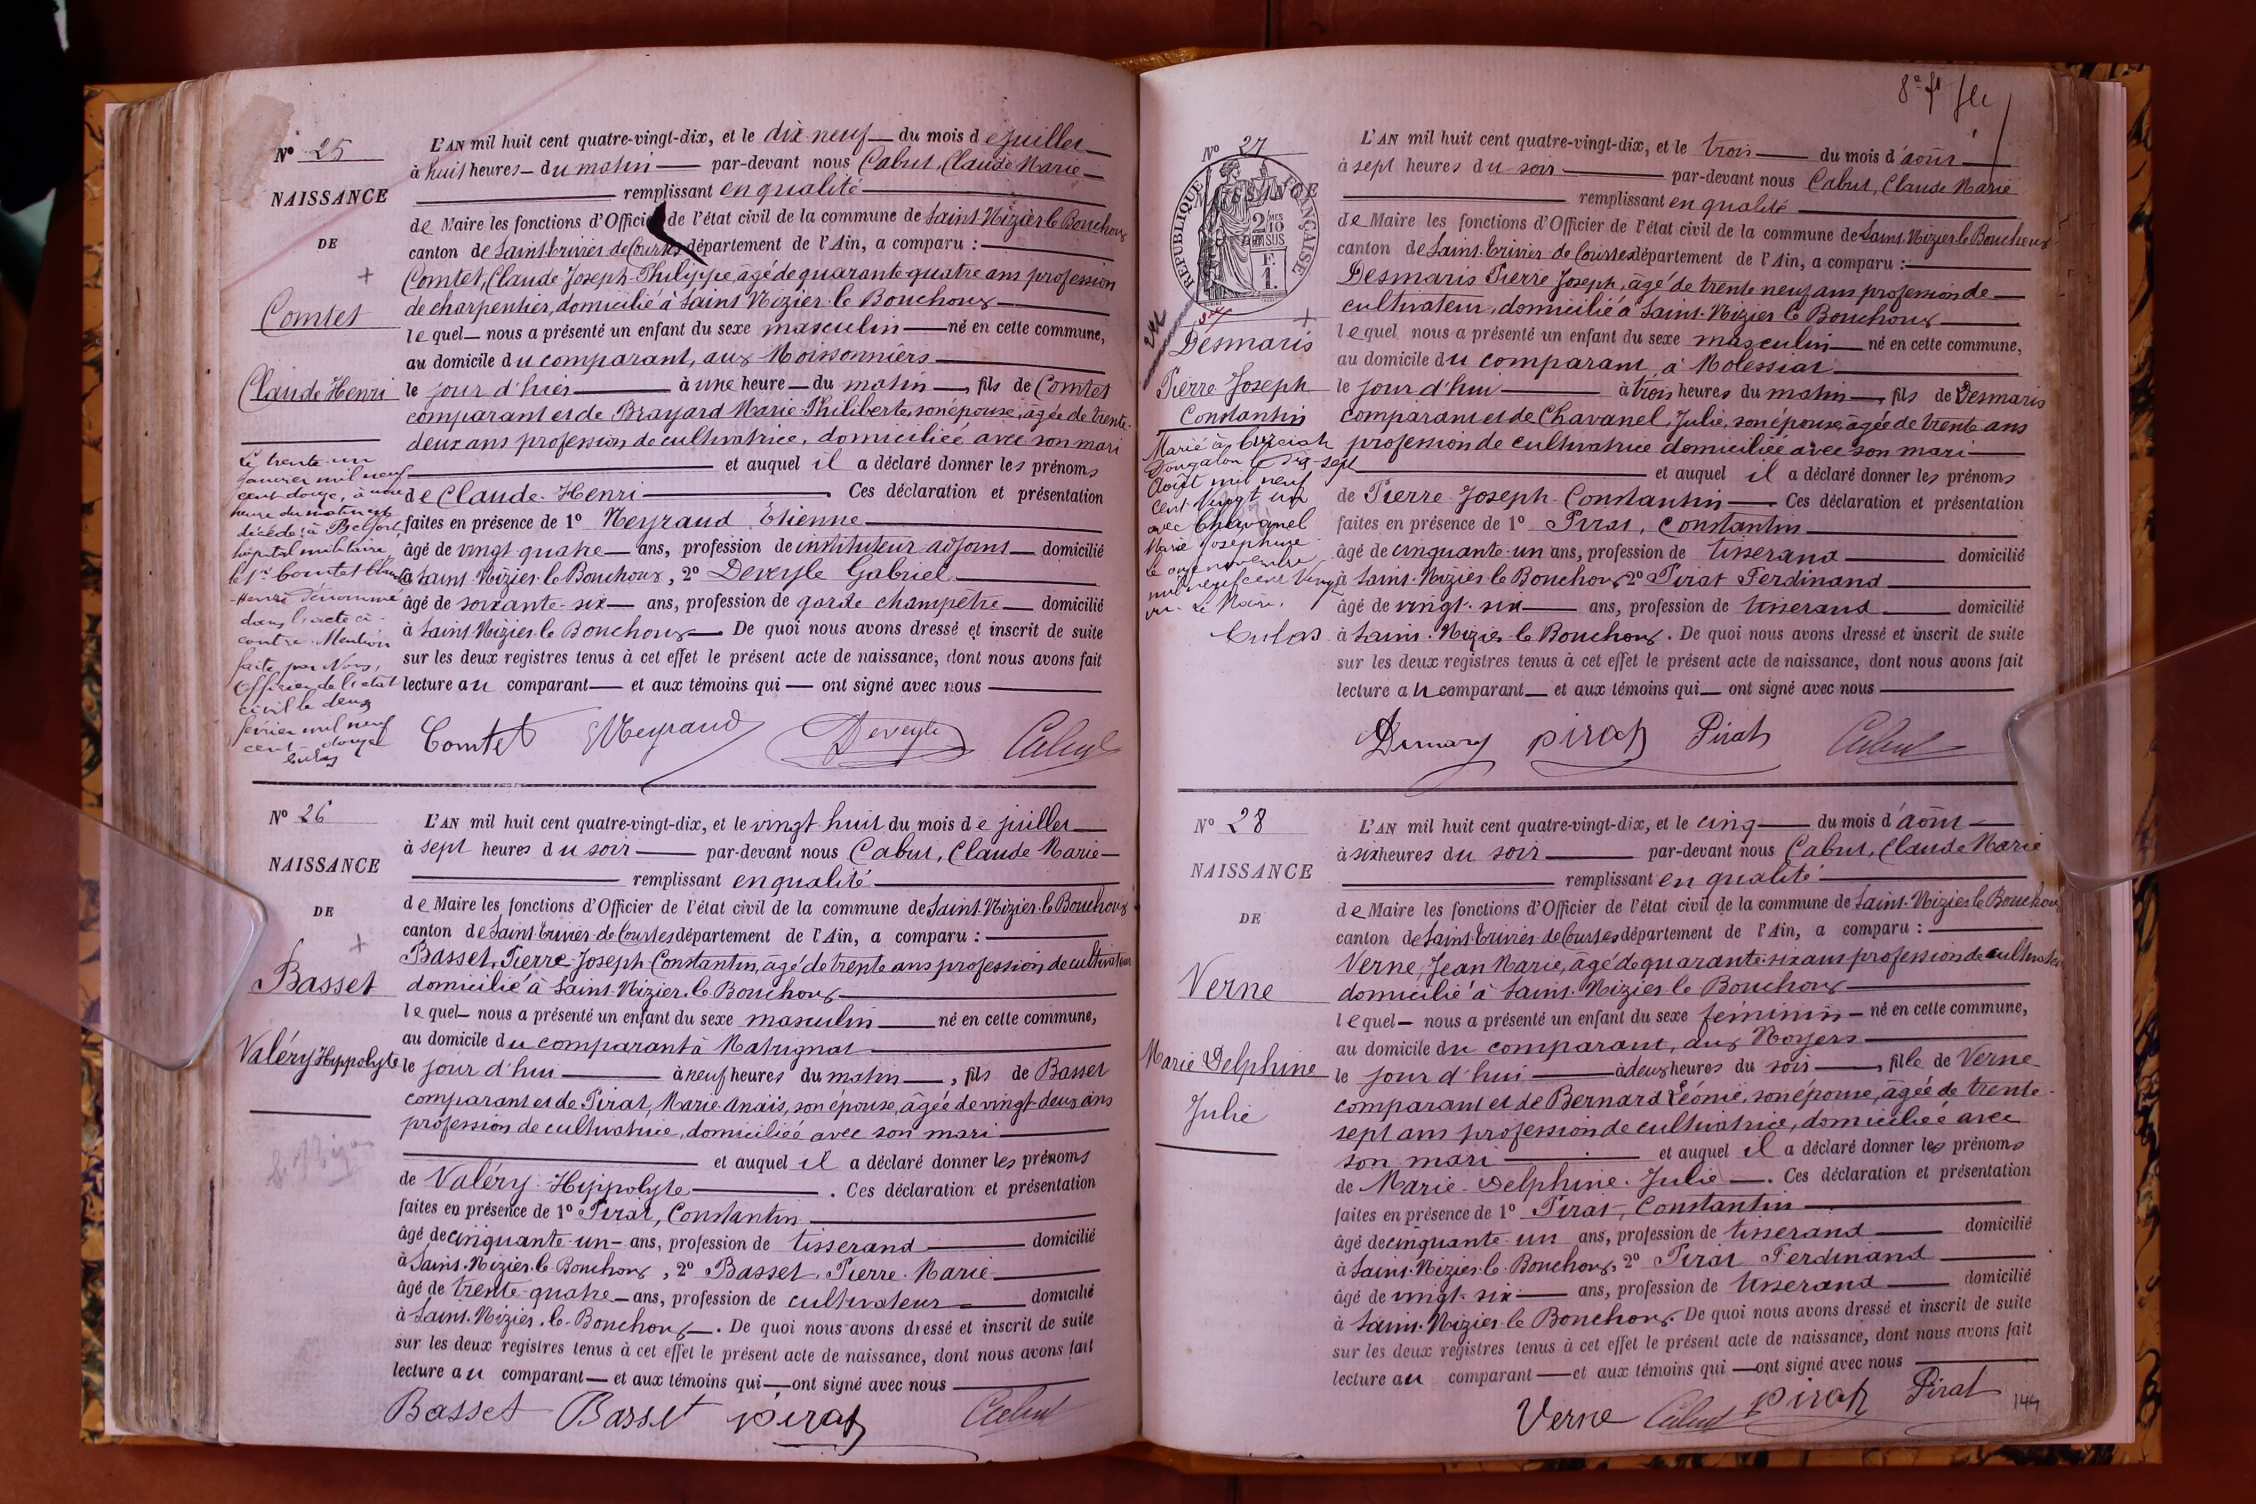 N° 25
NAISSANCE
DE
+
Comtet
Claude Henri
L'AN mil huit cent quatre-vingt-dix, et le dix neuf du mois de juillet
à huit heures du matin par-devant nous Cabut, Claude Marie
remplissant en qualité
de Maire les fonctions d'Officier de l'état civil de la commune de Saint-Nizier-le-Bouchoux
canton de Saint-Trivier de Courtes département de l'Ain, a comparu :
Comtet, Claude Joseph Philippe, âgé de quarante quatre ans profession
de charpentier, domicilié à Saint Nizier le Bouchoux
lequel nous a présenté un enfant du sexe masculin né en cette commune,
au domicile du comparant, aux Moissonniers
le jour d'hier à une heure du matin, fils de Comtet
comparant et de Brayard Marie Philiberte, son épouse, âgée de trente-
deux ans profession de cultivatrice, domiciliée avec son mari
et auquel il a déclaré donner les prénoms
de Claude-Henri. Ces déclaration et présentation
faites en présence de 1° Neyraud, Étienne
âgé de vingt quatre ans, profession de instituteur adjoint domicilié
à Saint-Nizier-le-Bouchoux, 2° Deveyle Gabriel
âgé de soixante-six ans, profession de garde champêtre domicilié
à Saint Nizier-le-Bouchoux. De quoi nous avons dressé et inscrit de suite
sur les deux registres tenus à cet effet le présent acte de naissance, dont nous avons fait
lecture au comparant et aux témoins qui ont signé avec nous
Comtet Neyraud Deveyle Cabut
Le trente-un
janvier mil neuf
cent douze, à une
heure du matin est
décédé à Belfort,
hôpital militaire
le Sr Comtet Claude
Henri dénommé
dans l'acte ci-
contre. Mention
faite par Nous,
Officier de l'état
civil le deux
février mil neuf
cent douze
N° 26
NAISSANCE
DE
+
Basset
Valéry Hippolyte
L'AN mil huit cent quatre-vingt-dix, et le vingt huit du mois de juillet
à sept heures du soir par-devant nous Cabut, Claude Marie
remplissant en qualité
de Maire les fonctions d'Officier de l'état civil de la commune de Saint-Nizier-le-Bouchoux
canton de Saint Trivier de Courtes département de l'Ain, a comparu :
Basset, Pierre-Joseph Constantin, âgé de trente ans profession de cultivateur
domicilié à Saint-Nizier-le-Bouchoux
lequel nous a présenté un enfant du sexe masculin né en cette commune,
au domicile du comparant à Matrignat
le jour d'hui à neuf heures du matin, fils de Basset
comparant et de Pirat, Marie Anaïs, son épouse, âgée de vingt-deux ans
profession de cultivatrice, domiciliée avec son mari
et auquel il a déclaré donner les prénoms
de Valéry-Hippolyte. Ces déclaration et présentation
faites en présence de 1° Pirat, Constantin
âgé de cinquante-un ans, profession de tisserand domicilié
à Saint-Nizier-le-Bouchoux, 2° Basset, Pierre-Marie
âgé de trente-quatre ans, profession de cultivateur domicilié
à Saint-Nizier-le-Bouchoux. De quoi nous avons dressé et inscrit de suite
sur les deux registres tenus à cet effet le présent acte de naissance, dont nous avons fait
lecture au comparant et aux témoins qui ont signé avec nous
Basset Basset pirat Cabut
N° 27
RÉPUBLIQUE FRANÇAISE
2/10 EN SUS
F. 1.
+
Desmaris
Pierre Joseph
Constantin
L'AN mil huit cent quatre-vingt-dix, et le trois du mois d'août
à sept heures du soir par-devant nous Cabut, Claude Marie
remplissant en qualité
de Maire les fonctions d'Officier de l'état civil de la commune de Saint-Nizier-le-Bouchoux
canton de Saint-Trivier de Courtes département de l'Ain, a comparu :
Desmaris Pierre Joseph, âgé de trente neuf ans profession de
cultivateur, domicilié à Saint-Nizier le Bouchoux
lequel nous a présenté un enfant du sexe masculin né en cette commune,
au domicile du comparant, à Molessiat
le jour d'hui à trois heures du matin, fils de Desmaris
comparant et de Chavanel, Julie, son épouse, âgée de trente ans
profession de cultivatrice domiciliée avec son mari
et auquel il a déclaré donner les prénoms
de Pierre-Joseph-Constantin. Ces déclaration et présentation
faites en présence de 1° Pirat, Constantin
âgé de cinquante-un ans, profession de tisserand domicilié
à Saint-Nizier-le-Bouchoux 2° Pirat Ferdinand
âgé de vingt-six ans, profession de tisserand domicilié
à Saint-Nizier-le-Bouchoux. De quoi nous avons dressé et inscrit de suite
sur les deux registres tenus à cet effet le présent acte de naissance, dont nous avons fait
lecture au comparant et aux témoins qui ont signé avec nous
pirat Pirat Cabut
Marié à Curciat
Dongalon le dix-sept
Août mil neuf
cent vingt un
avec Chavanel
Marie Josephine
le onze novembre
mil neuf cent vingt
un. Le Maire,
N° 28
NAISSANCE
DE
Verne
Marie Delphine
Julie
L'AN mil huit cent quatre-vingt-dix, et le cinq du mois d'août
à six heures du soir par-devant nous Cabut, Claude Marie
remplissant en qualité
de Maire les fonctions d'Officier de l'état civil de la commune de Saint-Nizier le Bouchoux
canton de Saint-Trivier de Courtes département de l'Ain, a comparu :
Verne, Jean Marie, âgé de quarante-six ans profession de cultivateur
domicilié à Saint-Nizier le Bouchoux
lequel nous a présenté un enfant du sexe féminin né en cette commune,
au domicile du comparant, aux Noyers
le jour d'hui à deux heures du soir, fille de Verne
comparant et de Bernard Léonie, son épouse, âgée de trente-
sept ans profession de cultivatrice, domiciliée avec
son mari et auquel il a déclaré donner les prénoms
de Marie-Delphine-Julie. Ces déclaration et présentation
faites en présence de 1° Pirat, Constantin
âgé de cinquante un ans, profession de tisserand domicilié
à Saint-Nizier-le-Bouchoux, 2° Pirat Ferdinand
âgé de vingt-six ans, profession de tisserand domicilié
à Saint-Nizier-le Bouchoux. De quoi nous avons dressé et inscrit de suite
sur les deux registres tenus à cet effet le présent acte de naissance, dont nous avons fait
lecture au comparant et aux témoins qui ont signé avec nous
Verne Cabut pirat Pirat